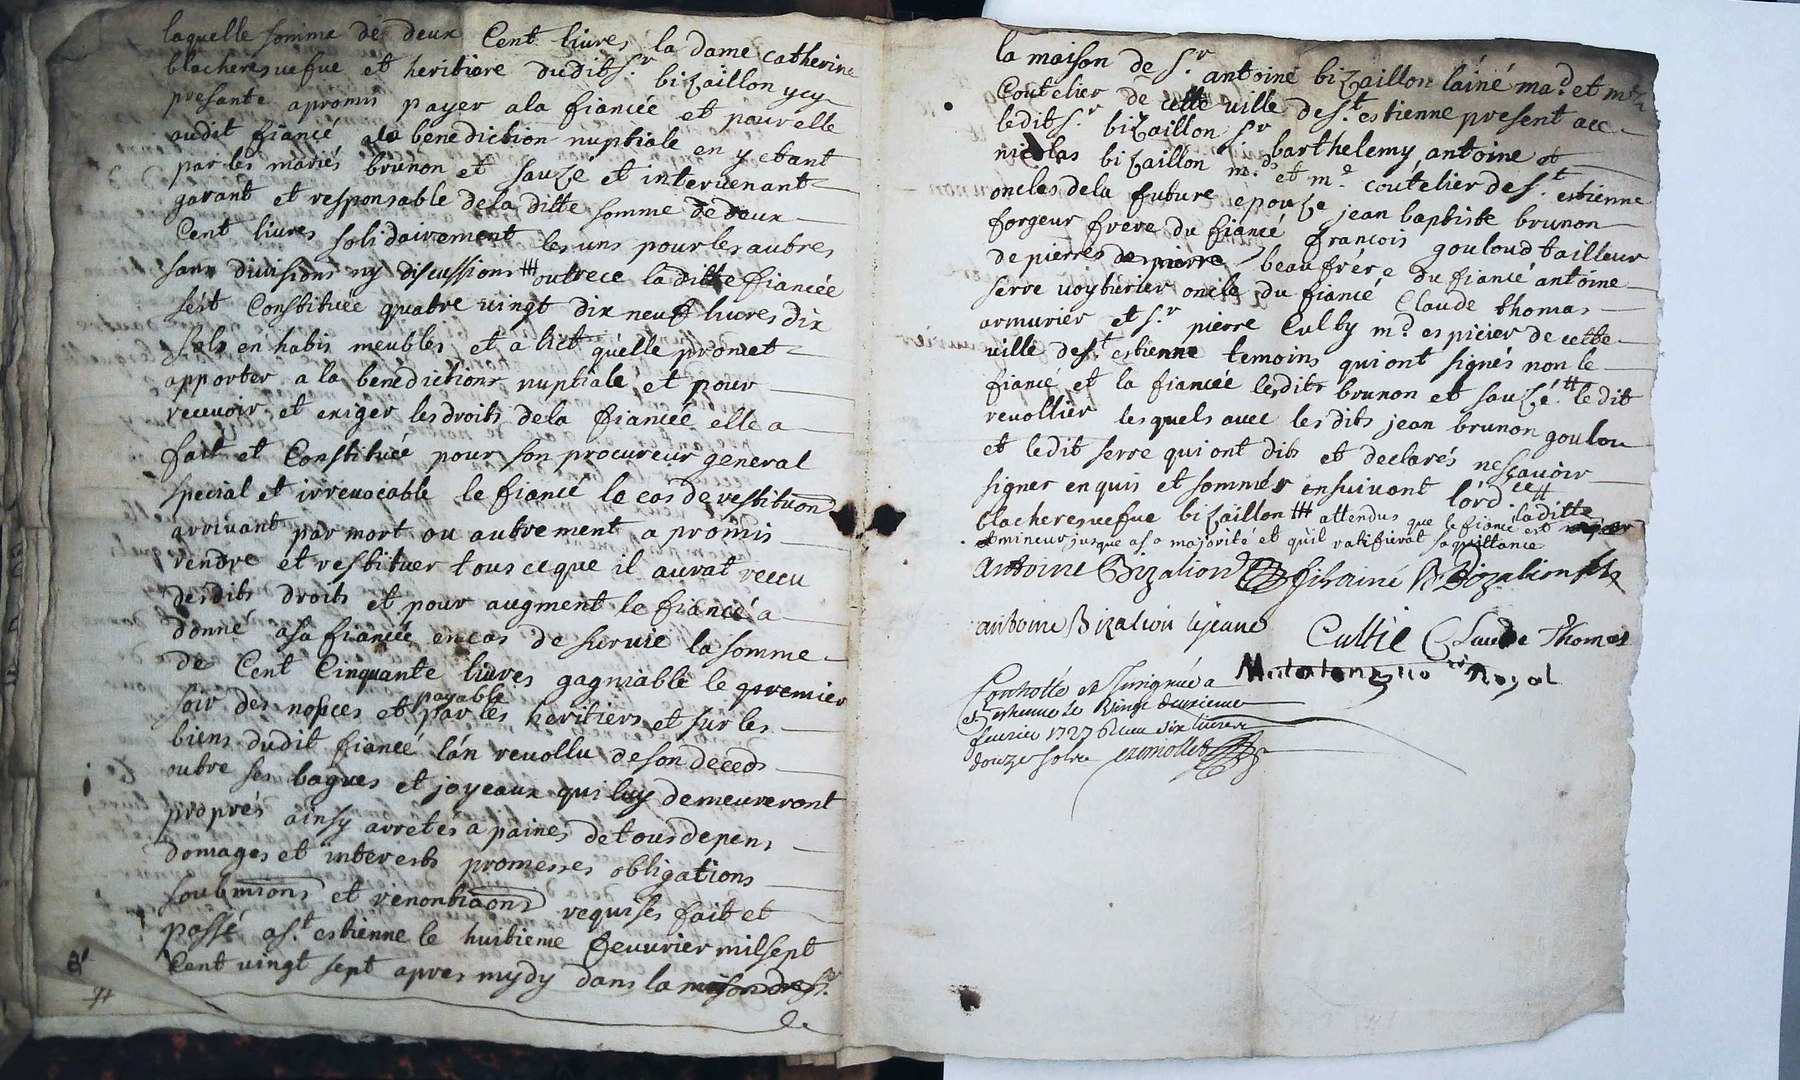 laquelle somme de deux Cent livres la dame catherine
blacheres uefue et heritiere dudit Sr. bizaillon ycy
presante a promis payer a la fiancée et pour elle
audit fiancé ala benediction nuptiale en y etant
par les mariés brunon et sauzé et interuenant
garant et responsable dela ditte somme de deux
Cent livres solidairement les uns pour les autres
sans divisions ny discussions outrece la ditte fiancée
sést Constituée quatre vingt dix neuf livres dix
sols en habis meubles et a lict quélle promet
apporter a la benediction nuptiale et pour
receuoir et exiger les droits dela fiancée elle a
fait et Constituée pour son procureur general
special et irreuocable le fiancé le cas de restituon
arriuant par mort ou autrement a promis
rendre et restituer tous ce que il aurat receu
desdits droits et pour augment le fiancé a
donné a sa fiancée en cas de suruie la somme
de Cent Cinquante livres gagniable le premier
soir des nopces et payable par les heritiers et sur les
biens dudit fiancé lán reuollu de son deceds
outre ses bagues et joyeaux qui luy demeureront
propres ainsy arretés a paines de tous depens
domages et interests promesses obligations
soubmions et renontiaons requises fait et
passé a St. estienne le huitieme feuurier mil sept
Cent vingt sept apres mydy dans la maison de Sr.
la maison de Sr. antoine bizaillon láiné md. et mtr.
Coutelier de cette ville de St. estienne present auec
ledit Sr. bizaillon Sr. barthelemy, antoine et
nicolas bizaillon mds. et me. coutelier de St. estienne
oncles dela future epouze jean baptiste brunon
forgeur frere du fiancé françois gouloud tailleur
de pierres de pierre beaufrére du fiancé antoine
serre uoyturier oncle du fiancé Claude thomas
armurier et Sr. pierre Culty md. espicier de cette
ville de St. estienne temoins qui ont signés non le
fiancé et la fiancée lesdits brunon et sauzé ledit
reuollier lesquels avec les dits jean brunon goulou
et ledit serre qui ont dits et declarés nesçauoir
signer enquis et sommés ensuivant lórdce la ditte
blacheres uefue bizaillon attendus que le fiancé est
mineur jusque a sa majorité et quíl ratifierat sa quittance
Antoine Bizalion fils ainé N Bizalion
antoine Bizalion lejeune Cultie Claude Thomas
Royal
Controllé et Insignué a
St Estienne le Vingt deuxieme
feurier 1727 Receu six liures
douze sols